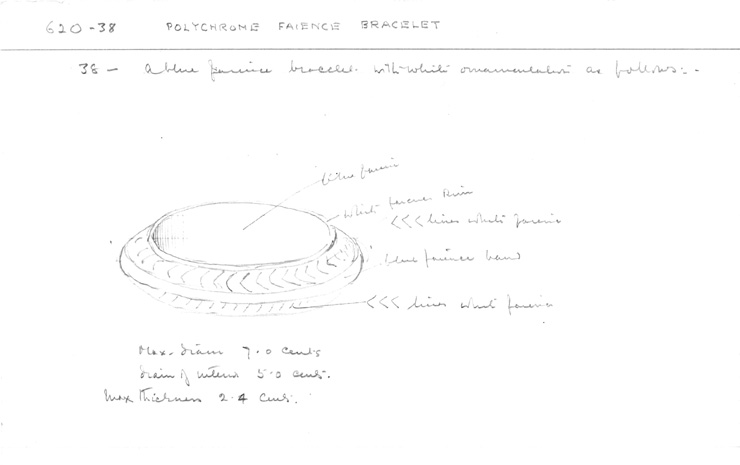 620-38 POLYCHROME FAIENCE BRACELET
38 — A blue faience bracelet with white ornamentation as follows:-
blue faience
White faience Rim
<<< lines white faience
blue faience band
<<< lines white faience
Max. diam 7.0 cents
diam of interior 5.0 cents.
Max thickness 2.4 cents.